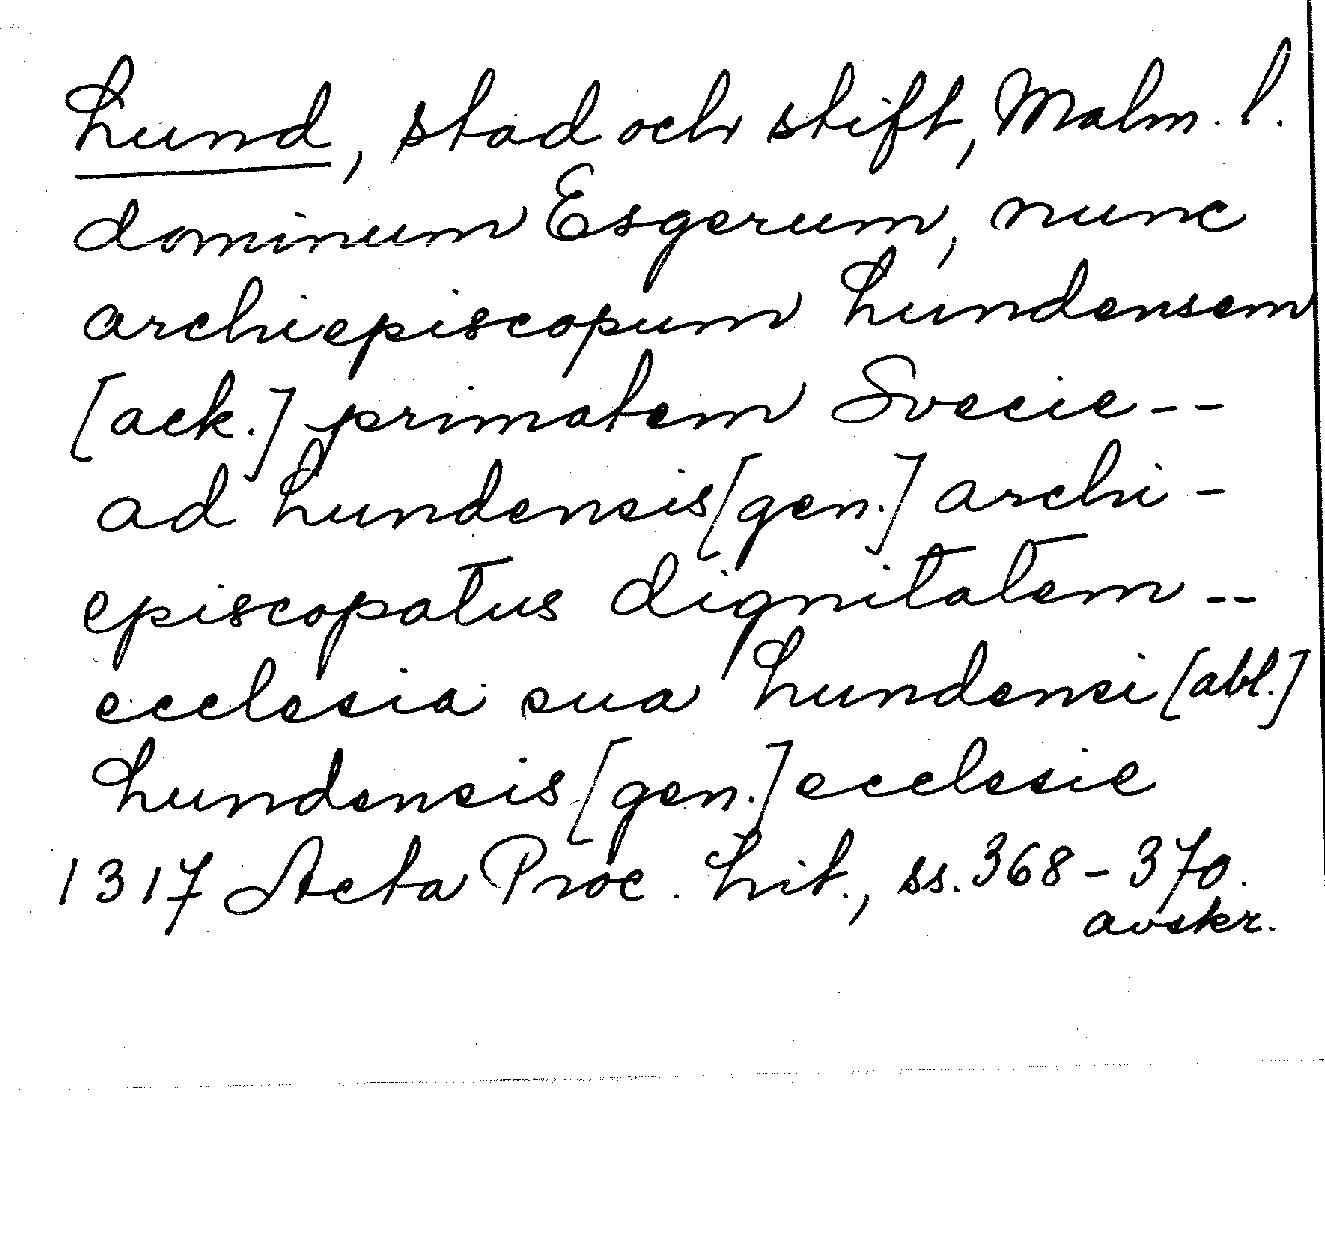 Lund, stad och stift, Malm. l.
dominum Esgerum, nunc
archiepiscopum Lundensem
[ack.] primatem Svecie--
ad Lundensis [gen.] archi-
episcopatus dignitatem--
ecclesia sua Lundensi [abl.]
Lundensis [gen.] ecclesie
1317 Acta Proc. Lit., ss. 368-370.
avskr.